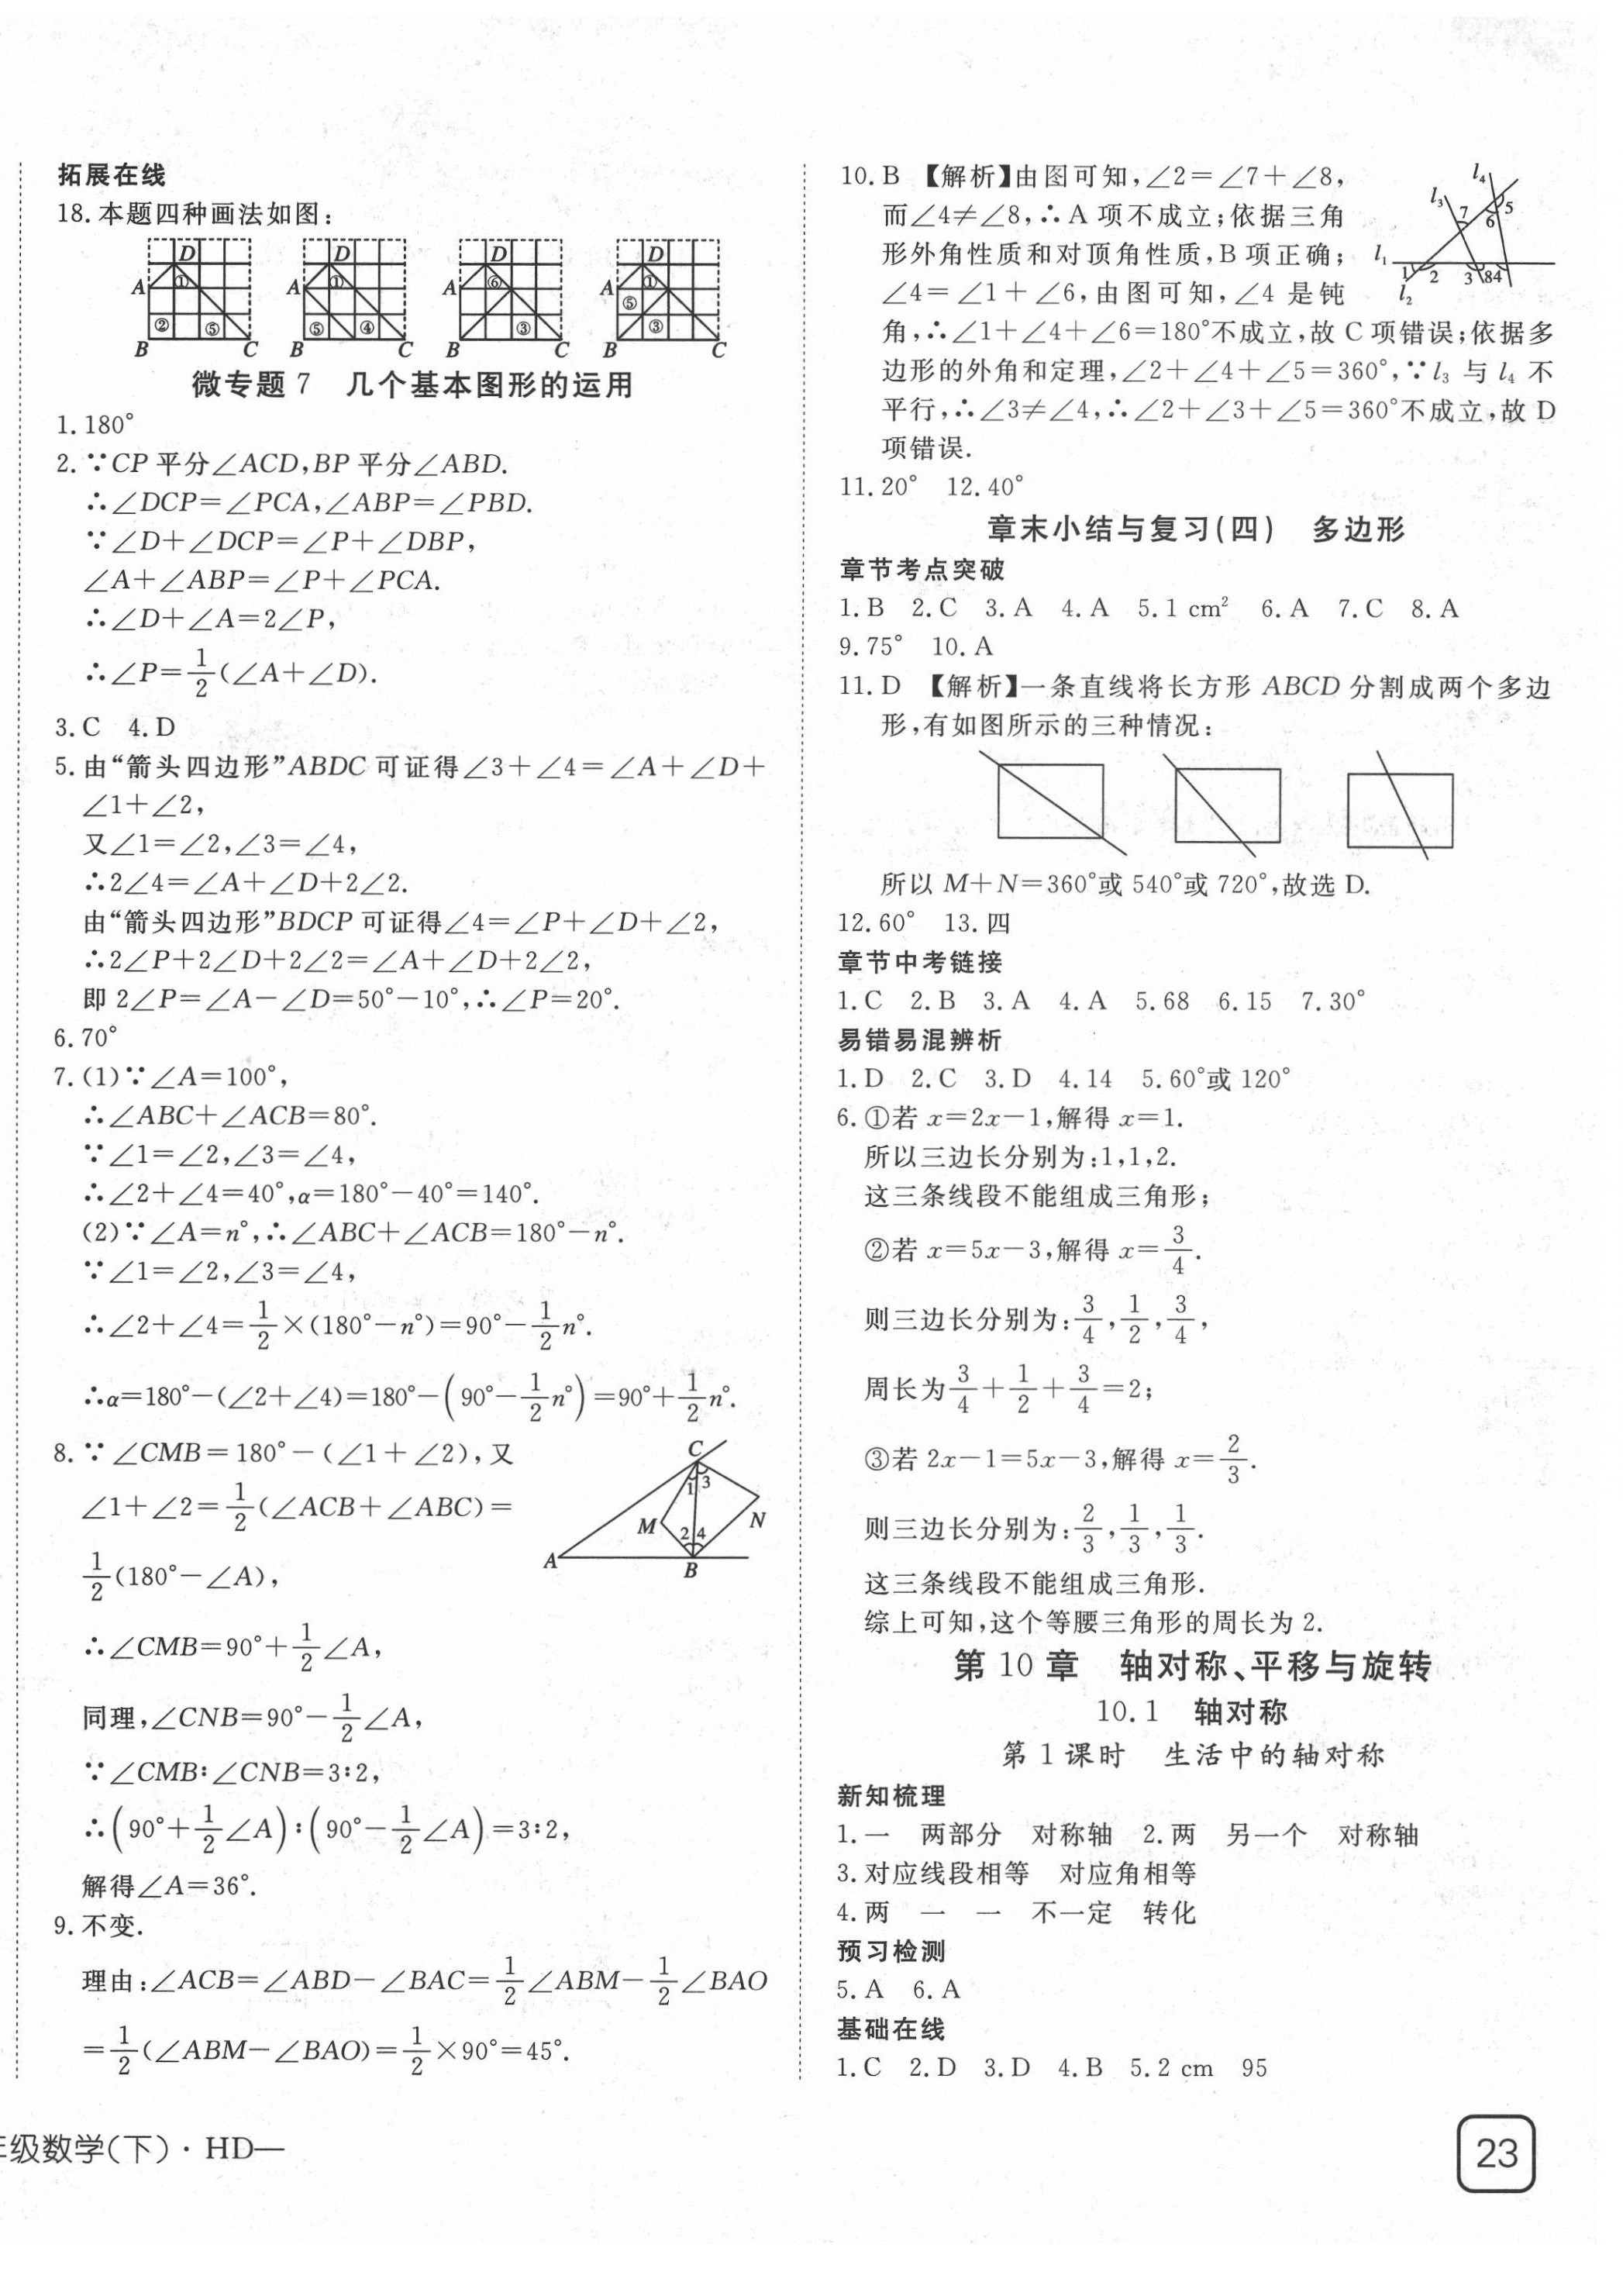 拓展在线
18.本题四种画法如图:
D D D D
A ① A ① A ⑥ A ① ⑤
② ⑤ ⑤ ④ ③ ③
B C B C B C B C
微专题7 几个基本图形的运用
1.180°
2.∵CP平分∠ACD,BP平分∠ABD.
∴∠DCP=∠PCA,∠ABP=∠PBD.
∵∠D+∠DCP=∠P+∠DBP,
∠A+∠ABP=∠P+∠PCA.
∴∠D+∠A=2∠P,
∴∠P=1/2(∠A+∠D).
3.C 4.D
5.由“箭头四边形”ABDC可证得∠3+∠4=∠A+∠D+
∠1+∠2,
又∠1=∠2,∠3=∠4,
∴2∠4=∠A+∠D+2∠2.
由“箭头四边形”BDCP可证得∠4=∠P+∠D+∠2,
∴2∠P+2∠D+2∠2=∠A+∠D+2∠2,
即2∠P=∠A-∠D=50°-10°,∴∠P=20°.
6.70°
7.(1)∵∠A=100°,
∴∠ABC+∠ACB=80°.
∵∠1=∠2,∠3=∠4,
∴∠2+∠4=40°,α=180°-40°=140°.
(2)∵∠A=n°,∴∠ABC+∠ACB=180°-n°.
∵∠1=∠2,∠3=∠4,
∴∠2+∠4=1/2×(180°-n°)=90°-1/2n°.
∴α=180°-(∠2+∠4)=180°-(90°-1/2n°)=90°+1/2n°.
8.∵∠CMB=180°-(∠1+∠2),又
∠1+∠2=1/2(∠ACB+∠ABC)=
1/2(180°-∠A),
C
1 3
M 2 4 N
A B
∴∠CMB=90°+1/2∠A,
同理,∠CNB=90°-1/2∠A,
∵∠CMB∶∠CNB=3∶2,
∴(90°+1/2∠A)∶(90°-1/2∠A)=3∶2,
解得∠A=36°.
9.不变.
理由:∠ACB=∠ABD-∠BAC=1/2∠ABM-1/2∠BAO
=1/2(∠ABM-∠BAO)=1/2×90°=45°.
年级数学(下)·HD—
10.B 【解析】由图可知,∠2=∠7+∠8,
而∠4≠∠8,∴A项不成立;依据三角
形外角性质和对顶角性质,B项正确;
∠4=∠1+∠6,由图可知,∠4是钝
角,∴∠1+∠4+∠6=180°不成立,故C项错误;依据多
边形的外角和定理,∠2+∠4+∠5=360°,∵l₃与l₄不
平行,∴∠3≠∠4,∴∠2+∠3+∠5=360°不成立,故D
项错误.
l₄
l₃ 7 5
6
l₁ 1 2 3 8 4
l₂
11.20° 12.40°
章末小结与复习(四) 多边形
章节考点突破
1.B 2.C 3.A 4.A 5.1 cm² 6.A 7.C 8.A
9.75° 10.A
11.D 【解析】一条直线将长方形ABCD分割成两个多边
形,有如图所示的三种情况:
所以M+N=360°或540°或720°,故选D.
12.60° 13.四
章节中考链接
1.C 2.B 3.A 4.A 5.68 6.15 7.30°
易错易混辨析
1.D 2.C 3.D 4.14 5.60°或120°
6.①若x=2x-1,解得x=1.
所以三边长分别为:1,1,2.
这三条线段不能组成三角形;
②若x=5x-3,解得x=3/4.
则三边长分别为:3/4,1/2,3/4,
周长为3/4+1/2+3/4=2;
③若2x-1=5x-3,解得x=2/3.
则三边长分别为:2/3,1/3,1/3.
这三条线段不能组成三角形.
综上可知,这个等腰三角形的周长为2.
第10章 轴对称、平移与旋转
10.1 轴对称
第1课时 生活中的轴对称
新知梳理
1.一 两部分 对称轴 2.两 另一个 对称轴
3.对应线段相等 对应角相等
4.两 一 一 不一定 转化
预习检测
5.A 6.A
基础在线
1.C 2.D 3.D 4.B 5.2 cm 95
23